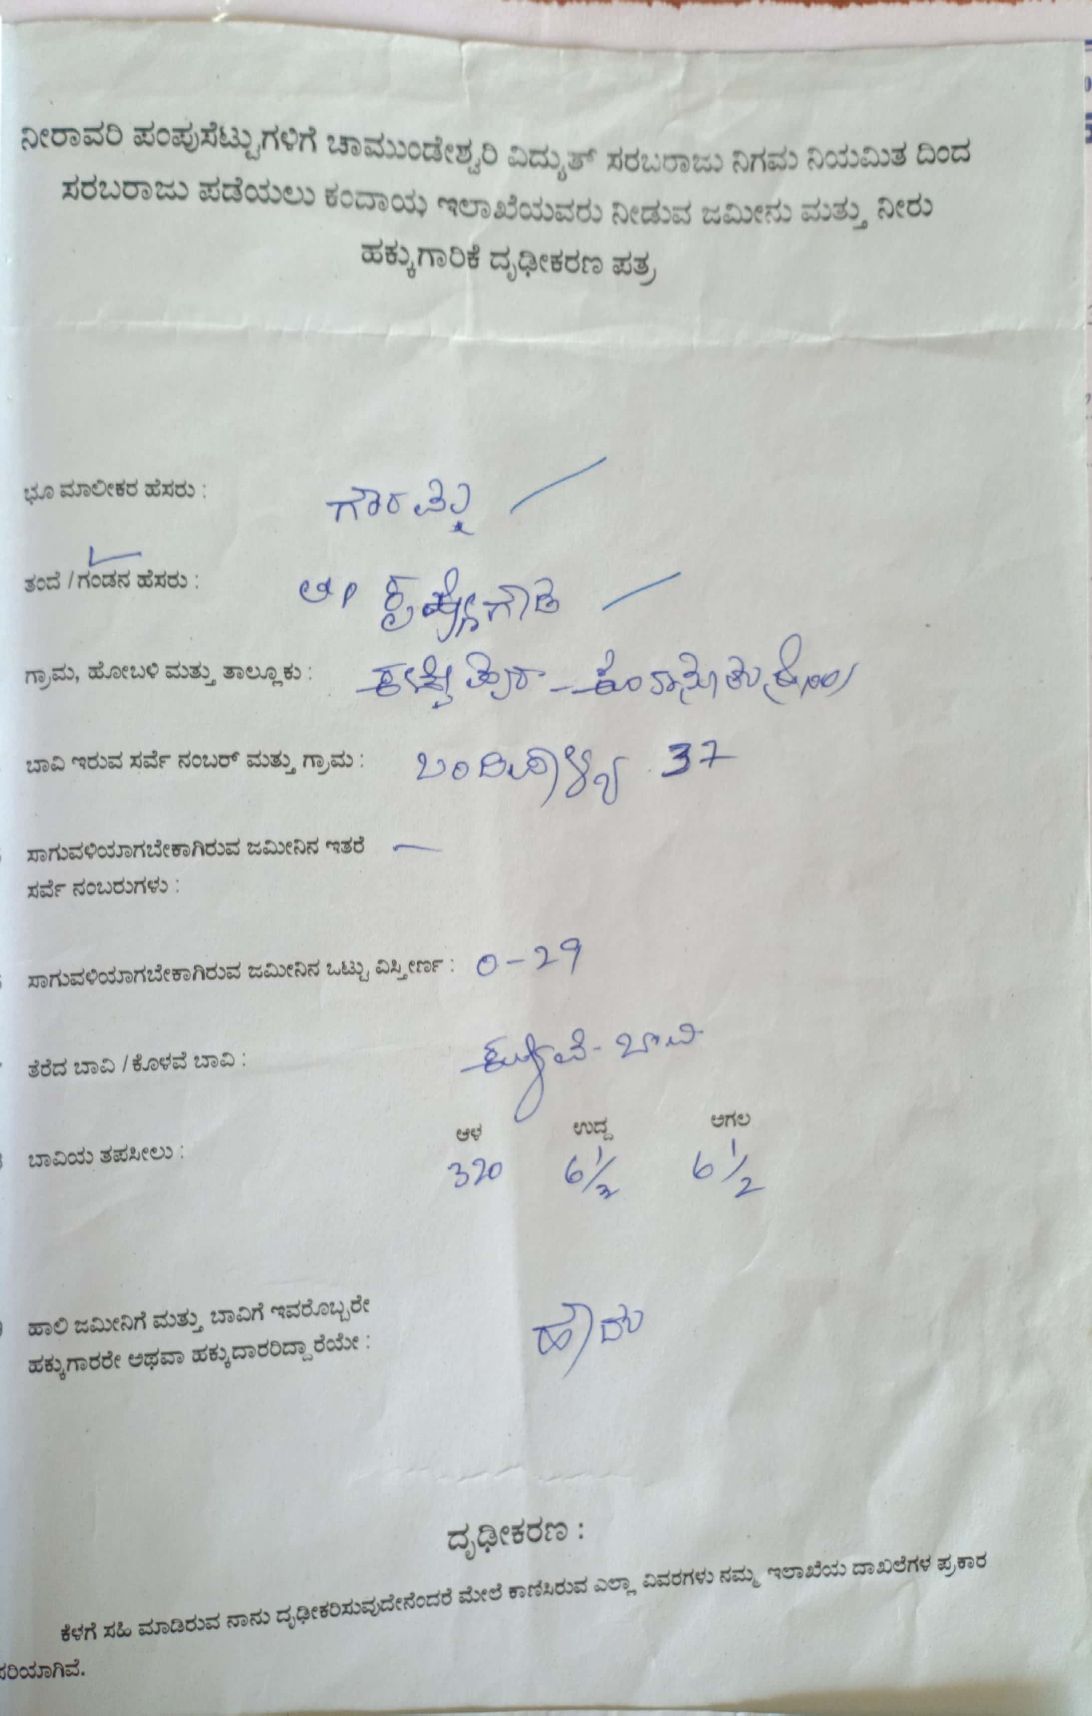 ನೀರಾವರಿ ಪಂಪುಸೆಟ್ಟುಗಳಿಗೆ ಚಾಮುಂಡೇಶ್ವರಿ ವಿದ್ಯುತ್ ಸರಬರಾಜು ನಿಗಮ ನಿಯಮಿತ ದಿಂದ
ಸರಬರಾಜು ಪಡೆಯಲು ಕಂದಾಯ ಇಲಾಖೆಯವರು ನೀಡುವ ಜಮೀನು ಮತ್ತು ನೀರು
ಹಕ್ಕುಗಾರಿಕೆ ದೃಢೀಕರಣ ಪತ್ರ
ಭೂ ಮಾಲೀಕರ ಹೆಸರು : ಗೌರಮ್ಮ
ತಂದೆ / ಗಂಡನ ಹೆಸರು : ಕೃಷ್ಣೇಗೌಡ
ಗ್ರಾಮ, ಹೋಬಳಿ ಮತ್ತು ತಾಲ್ಲೂಕು :
ಬಾವಿ ಇರುವ ಸರ್ವೆ ನಂಬರ್ ಮತ್ತು ಗ್ರಾಮ : ಬಂದಿಪಾಳ್ಯ 37
ಸಾಗುವಳಿಯಾಗಬೇಕಾಗಿರುವ ಜಮೀನಿನ ಇತರೆ —
ಸರ್ವೆ ನಂಬರುಗಳು :
ಸಾಗುವಳಿಯಾಗಬೇಕಾಗಿರುವ ಜಮೀನಿನ ಒಟ್ಟು ವಿಸ್ತೀರ್ಣ : 0-29
ತೆರೆದ ಬಾವಿ / ಕೊಳವೆ ಬಾವಿ : ಕೊಳವೆ-ಬಾವಿ
ಆಳ ಉದ್ದ ಅಗಲ
ಬಾವಿಯ ತಪಸೀಲು : 320 6 1/2 6 1/2
ಹಾಲಿ ಜಮೀನಿಗೆ ಮತ್ತು ಬಾವಿಗೆ ಇವರೊಬ್ಬರೇ
ಹಕ್ಕುಗಾರರೇ ಅಥವಾ ಹಕ್ಕುದಾರರಿದ್ದಾರೆಯೇ : ಹೌದು
ದೃಢೀಕರಣ :
ಕೆಳಗೆ ಸಹಿ ಮಾಡಿರುವ ನಾನು ದೃಢೀಕರಿಸುವುದೇನೆಂದರೆ ಮೇಲೆ ಕಾಣಿಸಿರುವ ಎಲ್ಲಾ ವಿವರಗಳು ನಮ್ಮ ಇಲಾಖೆಯ ದಾಖಲೆಗಳ ಪ್ರಕಾರ
ಸರಿಯಾಗಿವೆ.